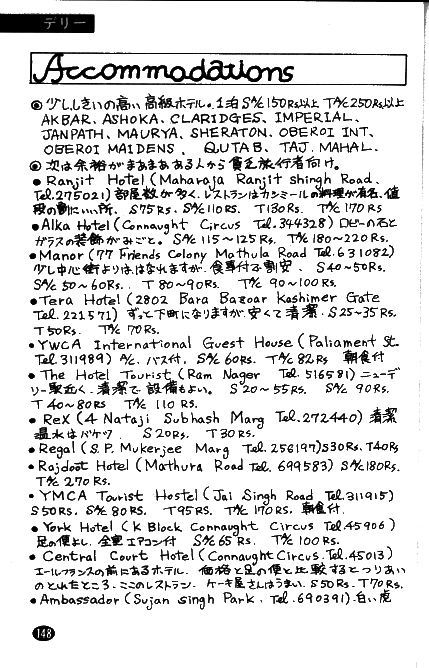 デリー
Accommodations
◎少ししきいの高い高級ホテル。1泊S%150Rs以上 T%250Rs以上
AKBAR, ASHOKA, CLARIDGES, IMPERIAL,
JANPATH, MAURYA, SHERATON, OBEROI INT,
OBEROI MAIDENS, QUTAB, TAJ, MAHAL.
◎次は余裕がまあまあある人から貧乏旅行者向け。
● Ranjit Hotel (Maharaja Ranjit Shingh Road.
Tel.275021) 部屋数が多く、レストランはカシミールの料理が有名、値
段の割にいい所。 S75Rs. S%110Rs. T130Rs. T%170Rs
●Alka Hotel (Connaught Circus Tel.344328) ロビーの石と
ガラスの装飾がみごと。S%115~125Rs. T%180~220Rs.
●Manor (77 Friends Colony Mathula Road Tel.631082)
少し中心街よりははなれますが、食事付で割安。 S40~50Rs.
S%50~60Rs. T80~90Rs. T%90~100Rs.
●Tera Hotel (2802 Bara Bazoar Kashimer Gate
Tel.221571) ずっと下町になりますが、安くて清潔. S25~35Rs.
T50Rs. T%70Rs.
●YWCA International Guest House (Paliament St.
Tel.311989) A/c. バス付. S%60Rs. T%82Rs 朝食付
● The Hotel Tourist (Ram Nagor Tel.516581) ニューデ
リー駅近く. 清潔で設備もよい。 S20~55Rs. S%90Rs.
T40~80Rs T%110Rs.
● Rex (4 Nataji Subhash Marg Tel.272440) 清潔
温水はバケツ. S20Rs. T30Rs.
●Regal (S.P. Mukerjee Marg Tel.256197) S30Rs. T40Rs
●Rajdoot Hotel (Mathura Road Tel.699583) S%180Rs.
T%270Rs.
●YMCA Tourist Hostel (Jai Singh Road Tel.311915)
S50Rs. S%80Rs. T95Rs. T%170Rs. 朝食付.
● York Hotel (K Block Connaught Circus Tel.45906)
足の便よし. 全室エアコン付 S%65Rs. T%100Rs.
● Central Court Hotel (Connaught Circus. Tel.45013)
エールフランスの前にあるホテル. 価格と足の便と比較するとつりあい
のとれたところ. ここのレストラン. ケーキ屋さんはうまい. S50Rs. T70Rs.
●Ambassador (Sujan Singh Park. Tel.690391). 白い虎
148